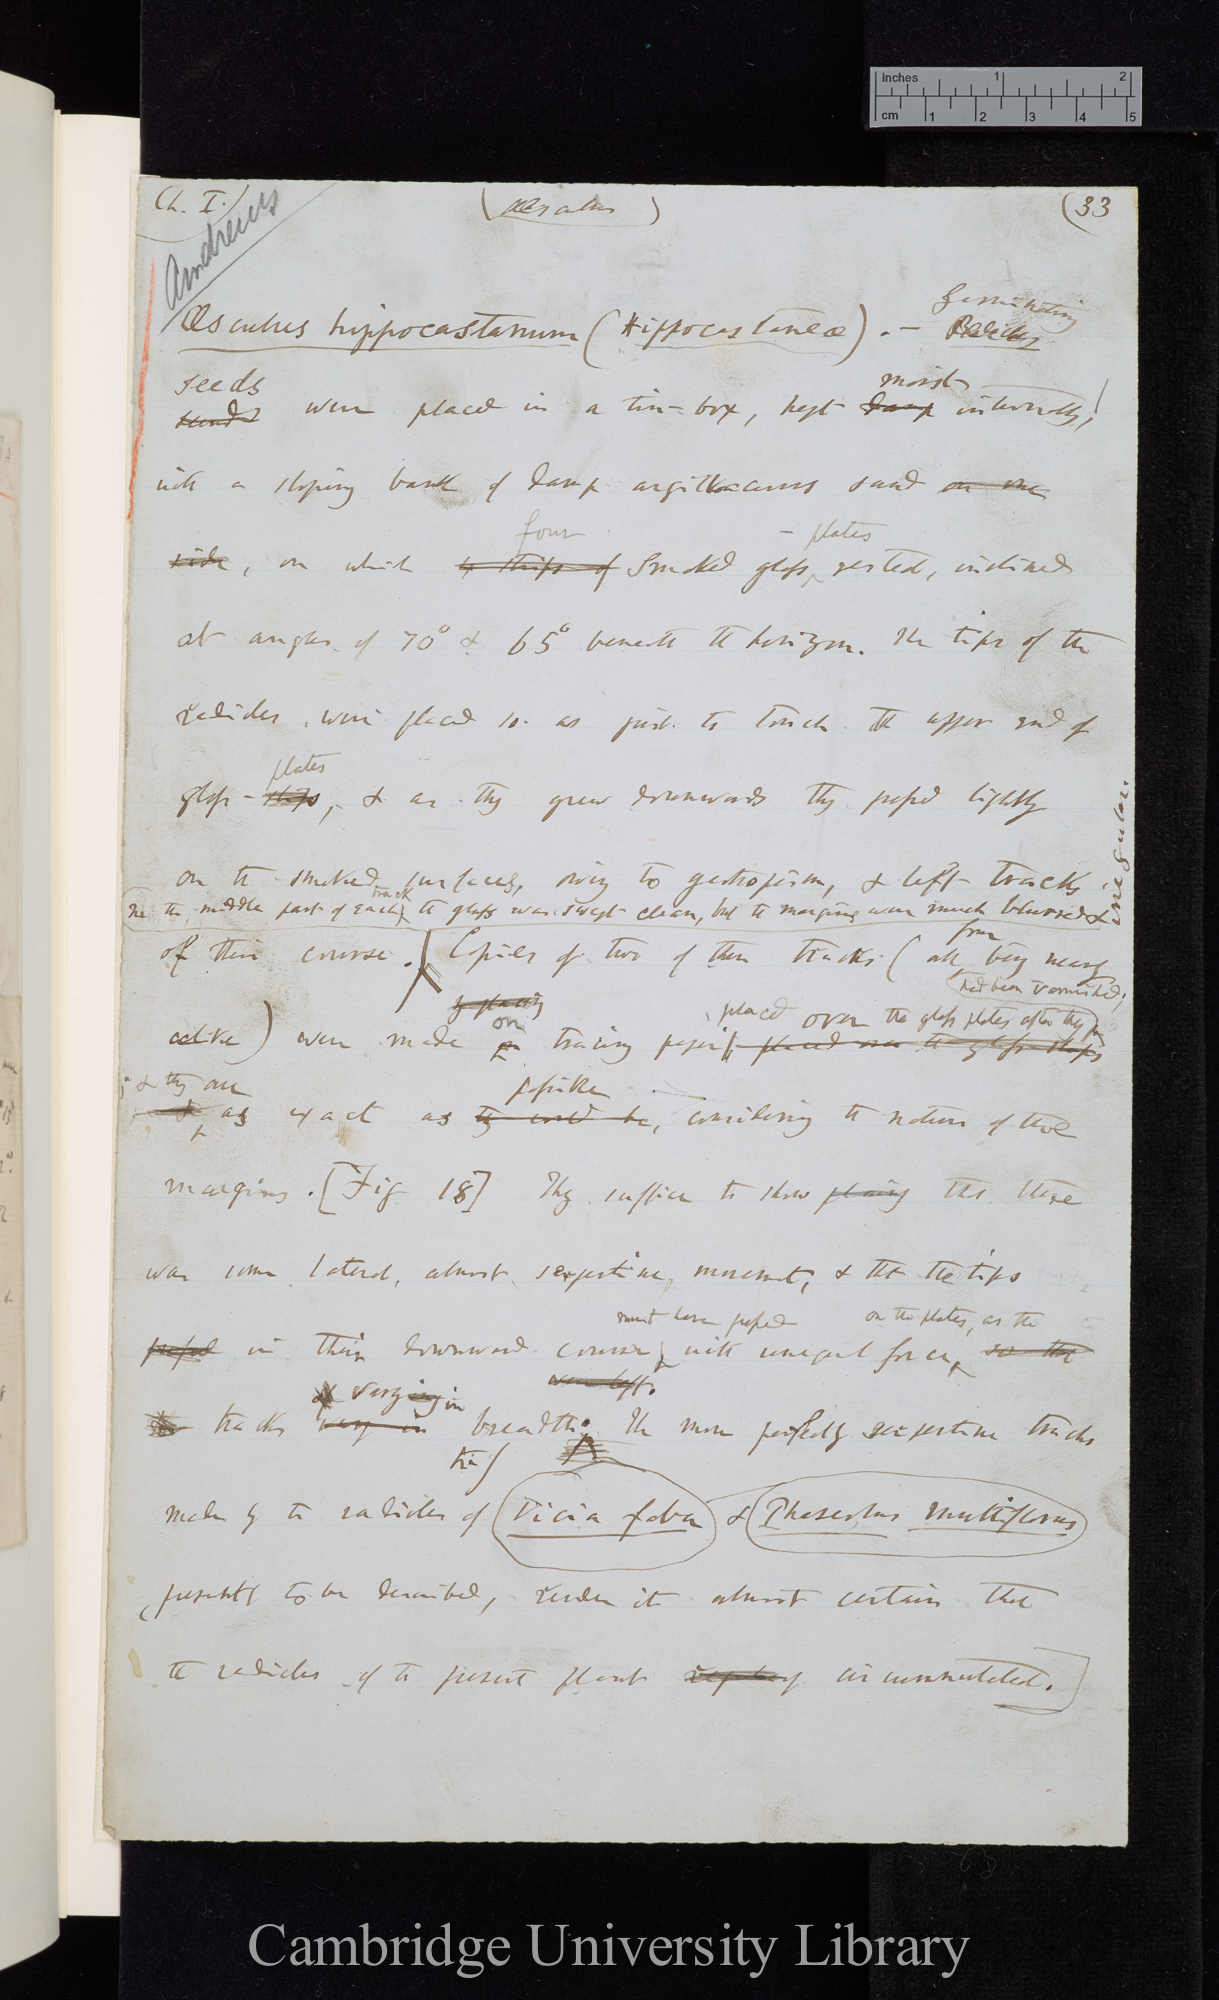 Inches 1 2
cm 1 2 3 4 5
Ch. I.) (Æsculus) (33
Andrews
Germinating
Æsculus hippocastanum (Hippocastaneæ). —
seeds moist
seeds were placed in a tin-box, kept damp internally,
with a sloping bank of damp argillaceous sand on one
four - plates
side, on which 4 strips of smoked glass, rested, inclined
at angles of 70° & 65° beneath the horizon. The tips of the
radicles were placed so as just to touch the upper end of
plates
glass-strips, & as they grew downwards they pressed lightly
on the smoked surfaces, owing to geotropism, & left tracks
In the middle part of each track the glass was swept clean, but the margins were much blurred & irregular.
of their course. Copies of two of these tracks (all four being nearly
had been varnished;
by placing
on placed over the glass plates after they
alike) were made on tracing paper placed over the glass-strips
; & they are possible
& as exact as they could be, considering the nature of the
margins. [Fig 18] They suffice to show plainly that there
was some lateral, almost serpentine movement, & that the tips
must have pressed on the plates, as the
pressed in their downward course with unequal force, so that
were left.
& varying in
the tracks vary in breadth. The more perfectly serpentine tracks
made by the radicles of Vicia faba & Phaseolus multiflorus
(presently to be described, render it almost certain that
the radicles of the present plant circumnutated.]
Cambridge University Library